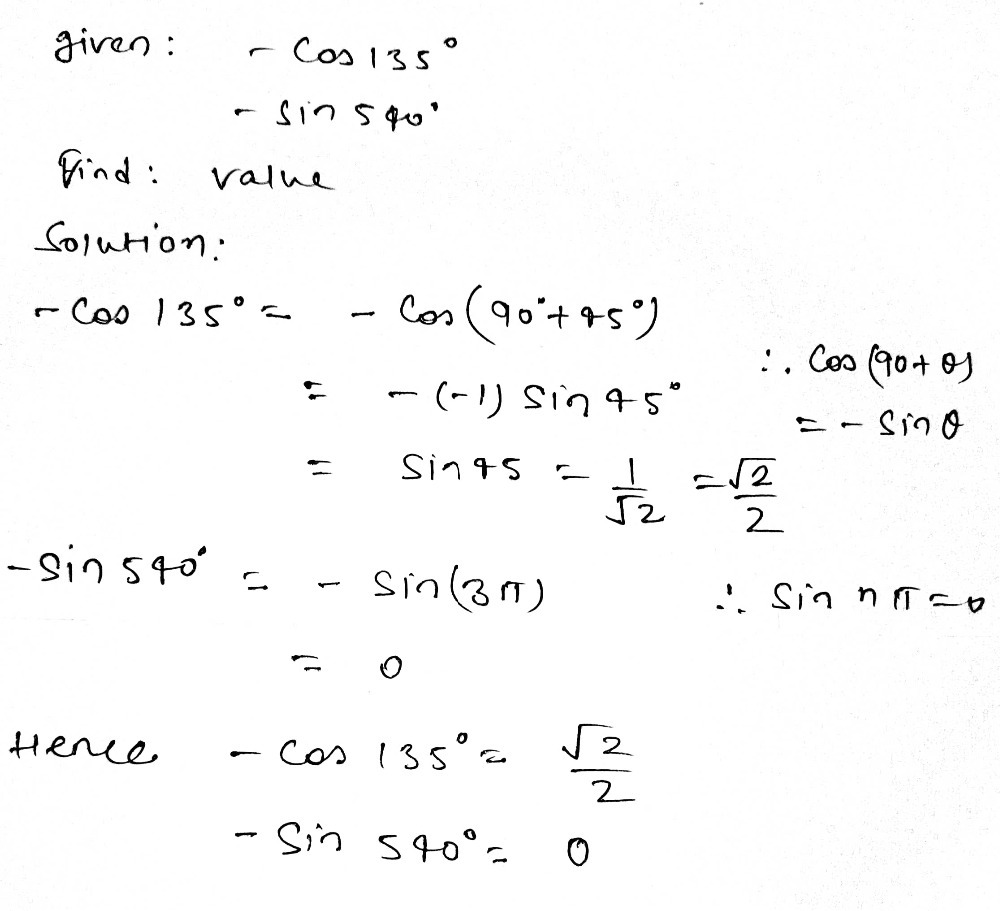 given: - Cos 135°
- Sin 540°
Find: value
Solution:
- Cos 135° = - Cos (90° + 45°)
∴ Cos (90 + θ)
= - (-1) Sin 45°
= - Sin θ
= Sin 45 = 1/√2 = √2/2
- Sin 540° = - Sin (3π) ∴ Sin nπ = 0
= 0
Hence - Cos 135° = √2/2
- Sin 540° = 0